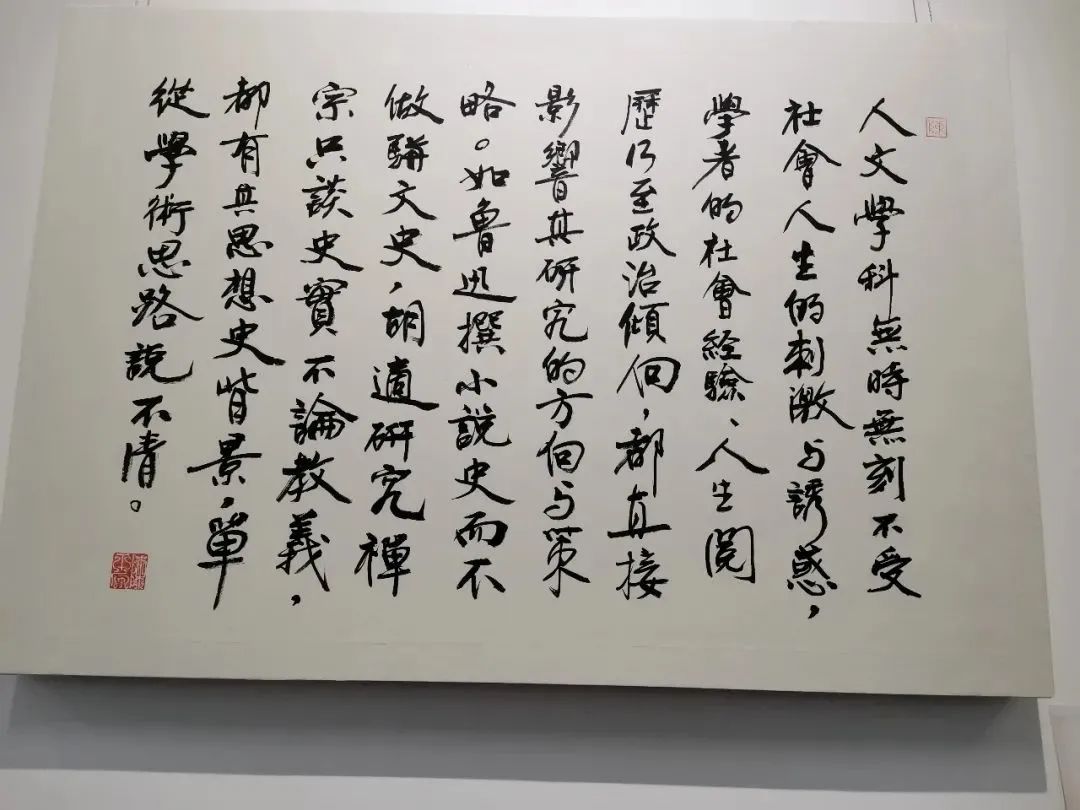 人文學科無時無刻不受
社會人生的刺激与誘惑，
學者的社會經驗、人生閱
歷乃至政治傾向，都直接
影響其研究的方向与策
略。如魯迅撰小說史而不
做駢文史，胡適研究禪
宗只談史實不論教義，
都有其思想史背景，單
從學術思路說不清。